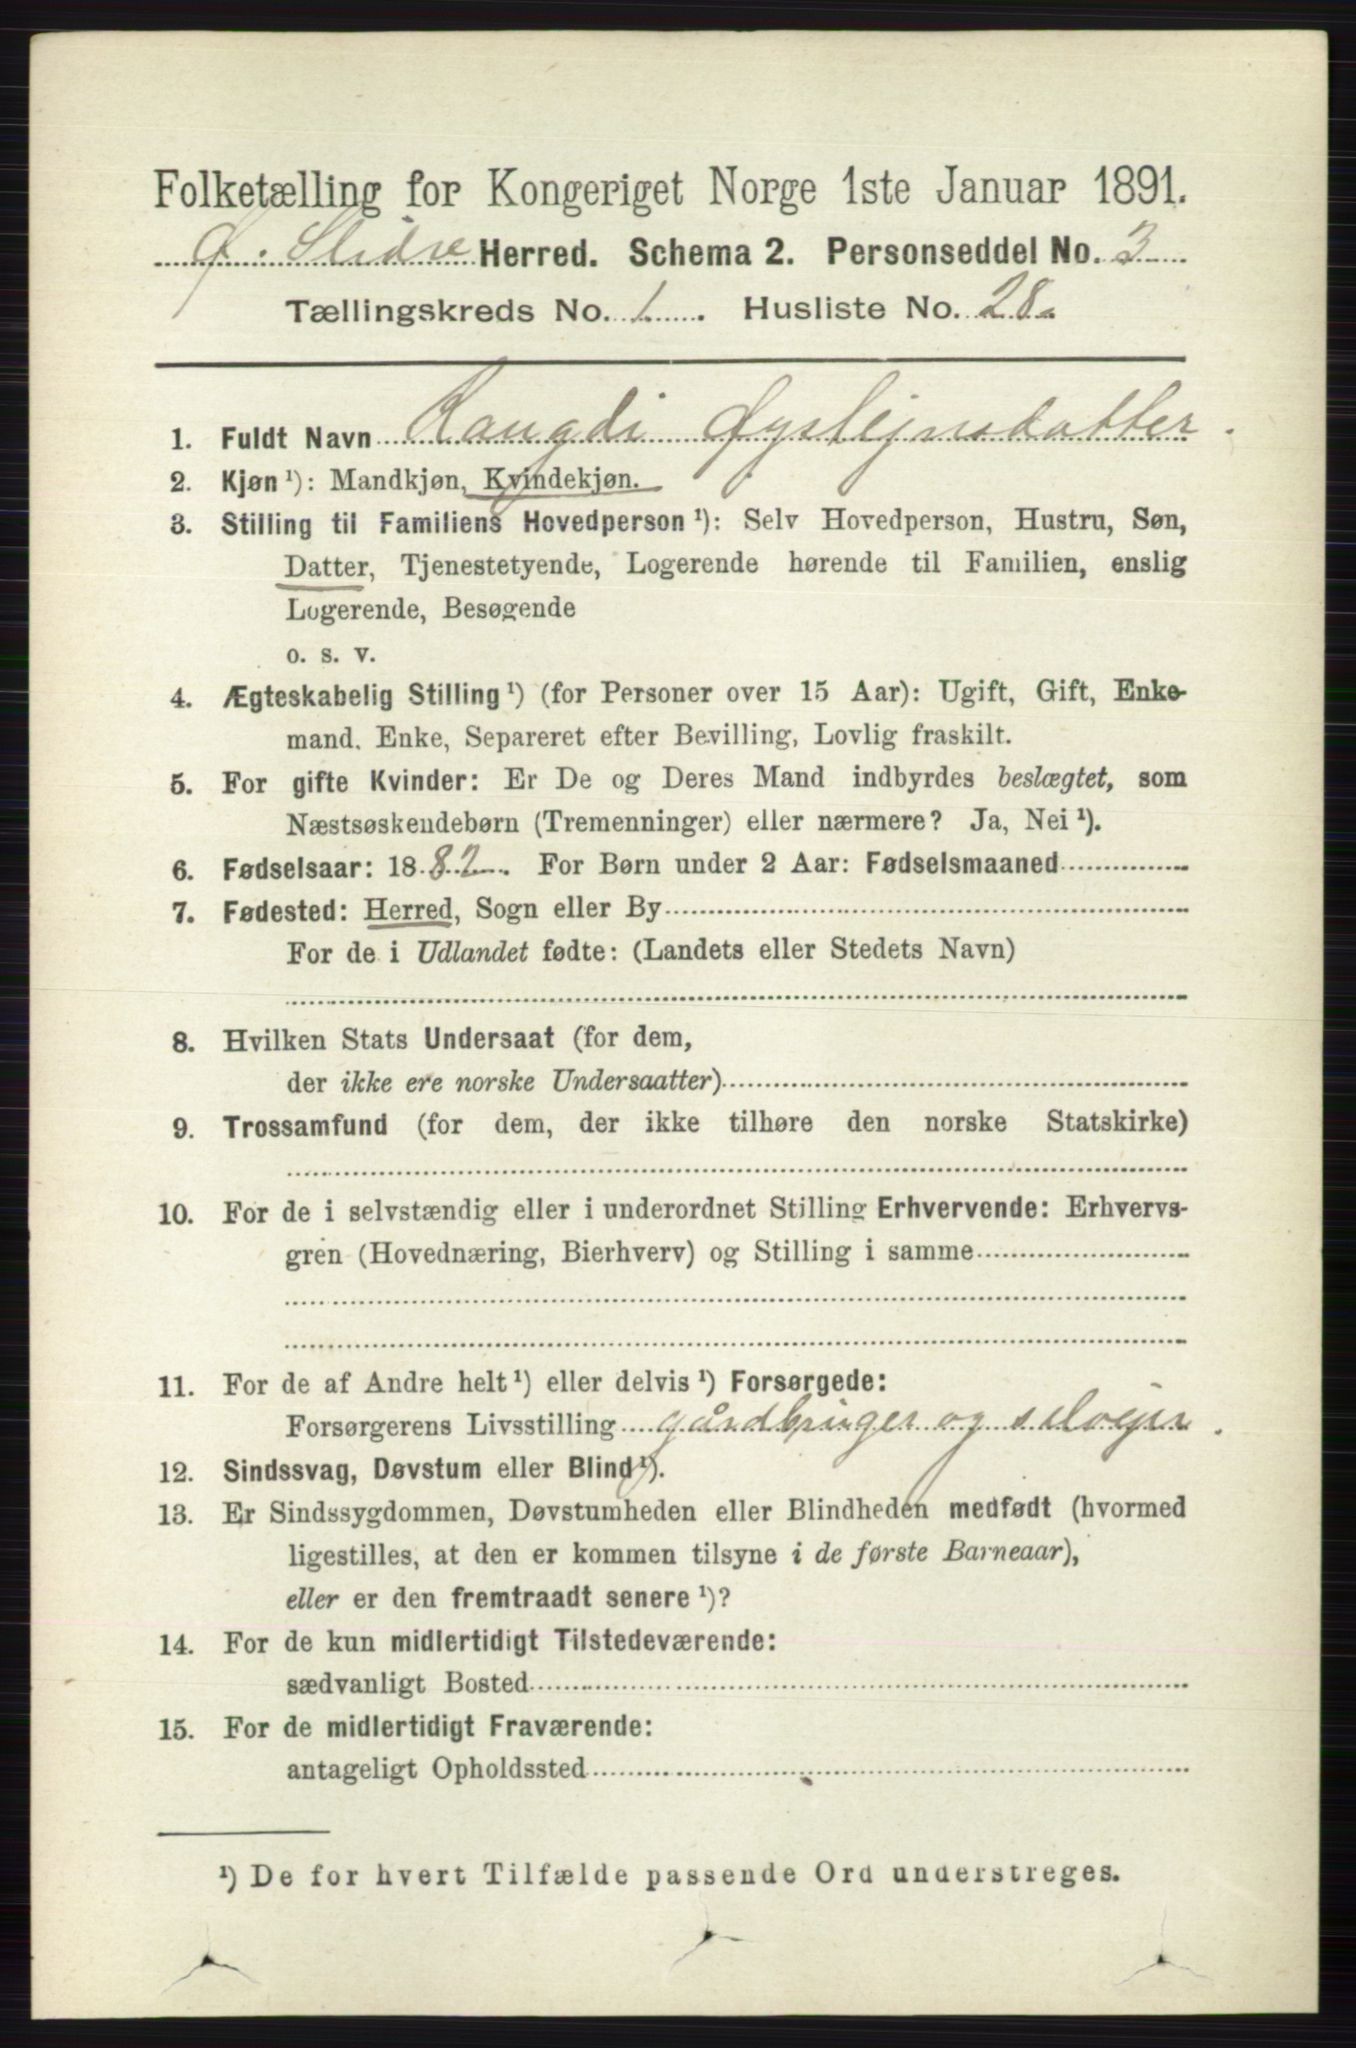 Folketælling for Kongeriget Norge 1ste Januar 1891.
Ø. Slidre Herred. Schema 2. Personseddel No. 3
Tællingskreds No. 1. Husliste No. 28.
1. Fuldt Navn Rangdi Øystejnsdatter.
2. Kjøn ¹): Mandkjøn, Kvindekjøn.
3. Stilling til Familiens Hovedperson ¹): Selv Hovedperson, Hustru, Søn,
Datter, Tjenestetyende, Logerende hørende til Familien, enslig
Logerende, Besøgende
o. s. v.
4. Ægteskabelig Stilling ¹) (for Personer over 15 Aar): Ugift, Gift, Enke-
mand, Enke, Separeret efter Bevilling, Lovlig fraskilt.
5. For gifte Kvinder: Er De og Deres Mand indbyrdes beslægtet, som
Næstsøskendebørn (Tremenninger) eller nærmere? Ja, Nei ¹).
6. Fødselsaar: 1882. For Børn under 2 Aar: Fødselsmaaned
7. Fødested: Herred, Sogn eller By
For de i Udlandet fødte: (Landets eller Stedets Navn)
8. Hvilken Stats Undersaat (for dem,
der ikke ere norske Undersaatter)
9. Trossamfund (for dem, der ikke tilhøre den norske Statskirke)
10. For de i selvstændig eller i underordnet Stilling Erhvervende: Erhvervs-
gren (Hovednæring, Bierhverv) og Stilling i samme
11. For de af Andre helt ¹) eller delvis ¹) Forsørgede:
Forsørgerens Livsstilling gårdbruger og selvejer.
12. Sindssvag, Døvstum eller Blind ¹).
13. Er Sindssygdommen, Døvstumheden eller Blindheden medfødt (hvormed
ligestilles, at den er kommen tilsyne i de første Barneaar),
eller er den fremtraadt senere ¹)?
14. For de kun midlertidigt Tilstedeværende:
sædvanligt Bosted
15. For de midlertidigt Fraværende:
antageligt Opholdssted
¹) De for hvert Tilfælde passende Ord understreges.